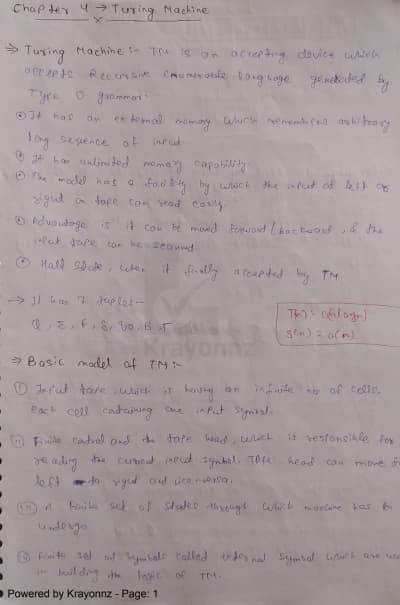 Chapter 4 → Turing Machine
→ Turing Machine :- TM is an accepting device which
accepts Recursive Enumerable language generated by
Type 0 grammar.
It has an external memory which remembers arbitrary
long sequence of input.
It has unlimited memory capability.
The model has a facility by which the input at left or
right on tape can read easily.
Advantage is it can be moved forward / backward, & the
input tape can be scanned.
Halt state, when it finally accepted by TM.
→ It has 7 tuples-
Q, Σ, F, δ, q0, B, T
T(n) = O(n log n)
S(n) = O(n)
Krayonnz
⇒ Basic model of TM :-
(i) Input tape, which is having an infinite no of cells.
Each cell containing one input symbol.
(ii) Finite control and the tape head, which is responsible for
reading the current input symbol. Tape head can move
left to right and viceversa.
(iii) A finite set of states through which machine has to
undergo
Finite set of symbols called external symbol which are use
in building the logic of TM.
Powered by Krayonnz - Page: 1